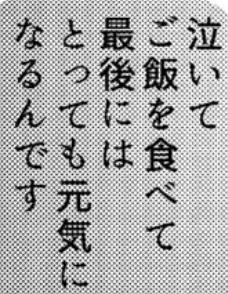 泣いて
ご飯を食べて
最後には
とっても元気に
なるんです